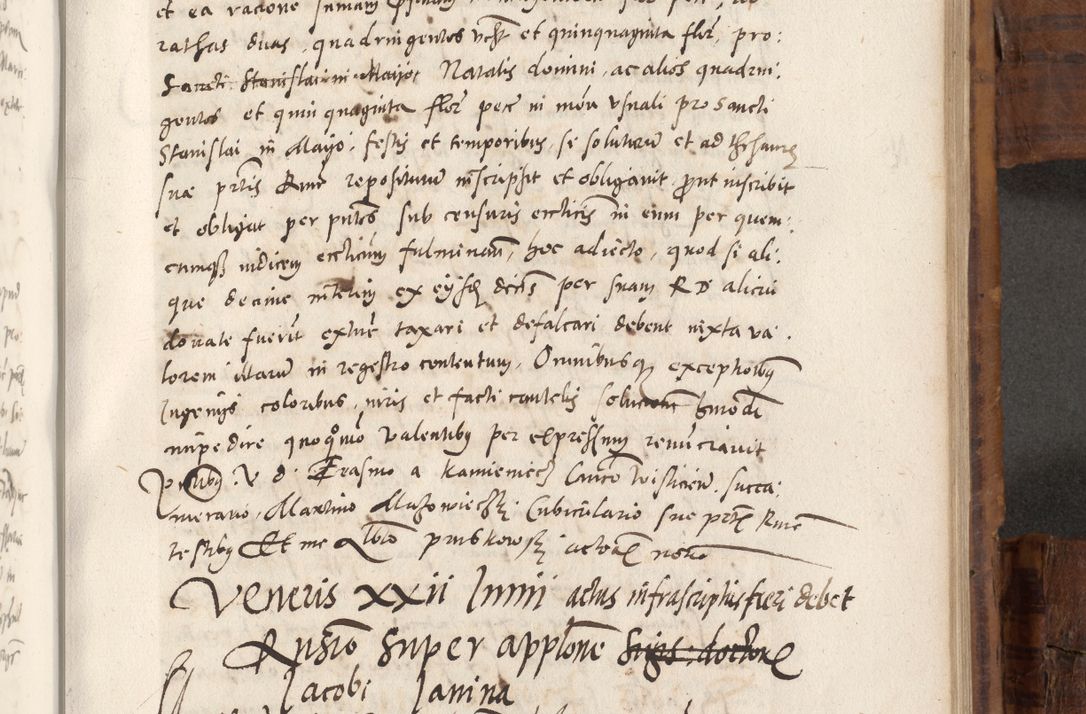 et ea racione sumam
rathas duas, quadringentos vcht et quinquaginta flor, pro:
Sancti Stanislai in Maijo Natalis domini, ac alios quadrin:
gentos et quinquaginta flor pecc in mon vsuali pro Sancti
Stanislai in Maijo, festis et temporibus, se soluturum et ad thesaurum
suae prtis Rme repositurum inscripsit et obligauit, prout inscribit
et obligat per pntes sub censuris ecclicis in eum per quem:
cumq iudicem ecclicum fulminan, hoc adiecto, quod si ali:
que decime interim ex eijsd decis per suam R D alicui
donate fuerit extunc taxari et defalcari debent iuxta va:
lorem illarum in regestro contentum, Omnibusq exceptioibq
Ingenijs coloribus, iuris et facti cautelis solucionem hmodi
impedire quoquomo valentibq per expressum renunciauit
Pntibq V d. Erasmo a Kamieniecz Cantore Wislicien, succa:
merario, Martino Mazowieczki Cubiculario sue prtis Rme
testibq Et me Albro pruskowski actorum noto
Veneris xxii Iunii actus infrascriptus fieri debet
Quistio super applone
Jacobi Janina